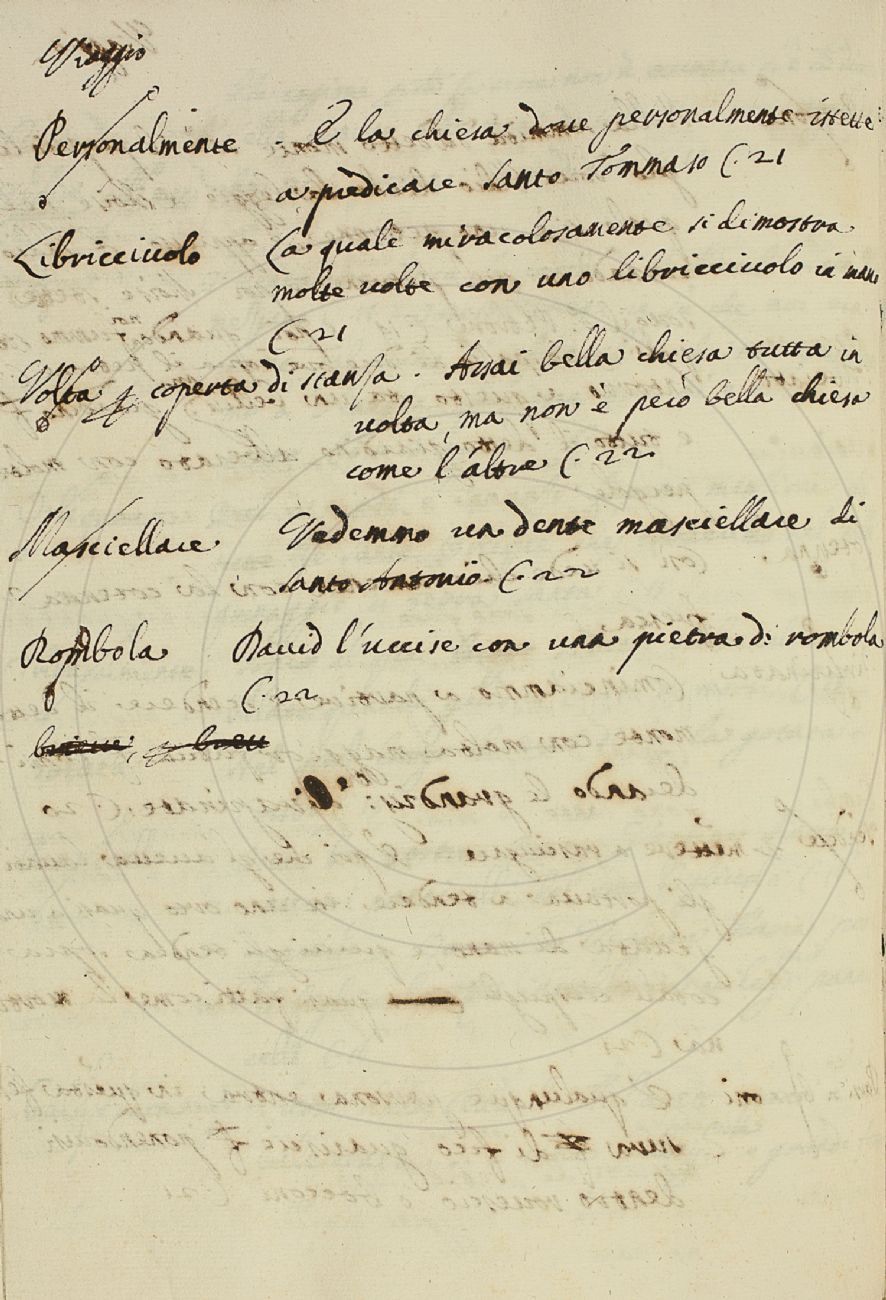 Viaggio
Personalmente - È la chiesa dove personalmente istette
a predicare Santo Tommaso C. 21
Libricciuolo La quale miracolosamente si dimostra
molte volte con uno libricciuolo in mano
C. 21
Volta p coperta di stanza. Assai bella chiesa tutta in
volta, ma non è però bella chiesa
come l'altre C. 22
Masciellare Vedemmo un dente masciellare di
Santo Antonio C. 22
Rombola David l'uccise con una pietra di rombola
C. 22